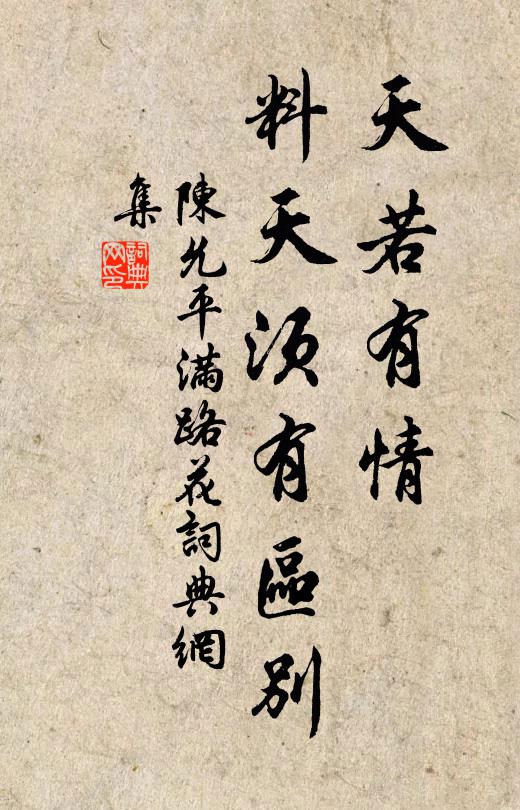 天若有情
料天須有區別
陳允平滿路花詞典網
集
詞典
网印